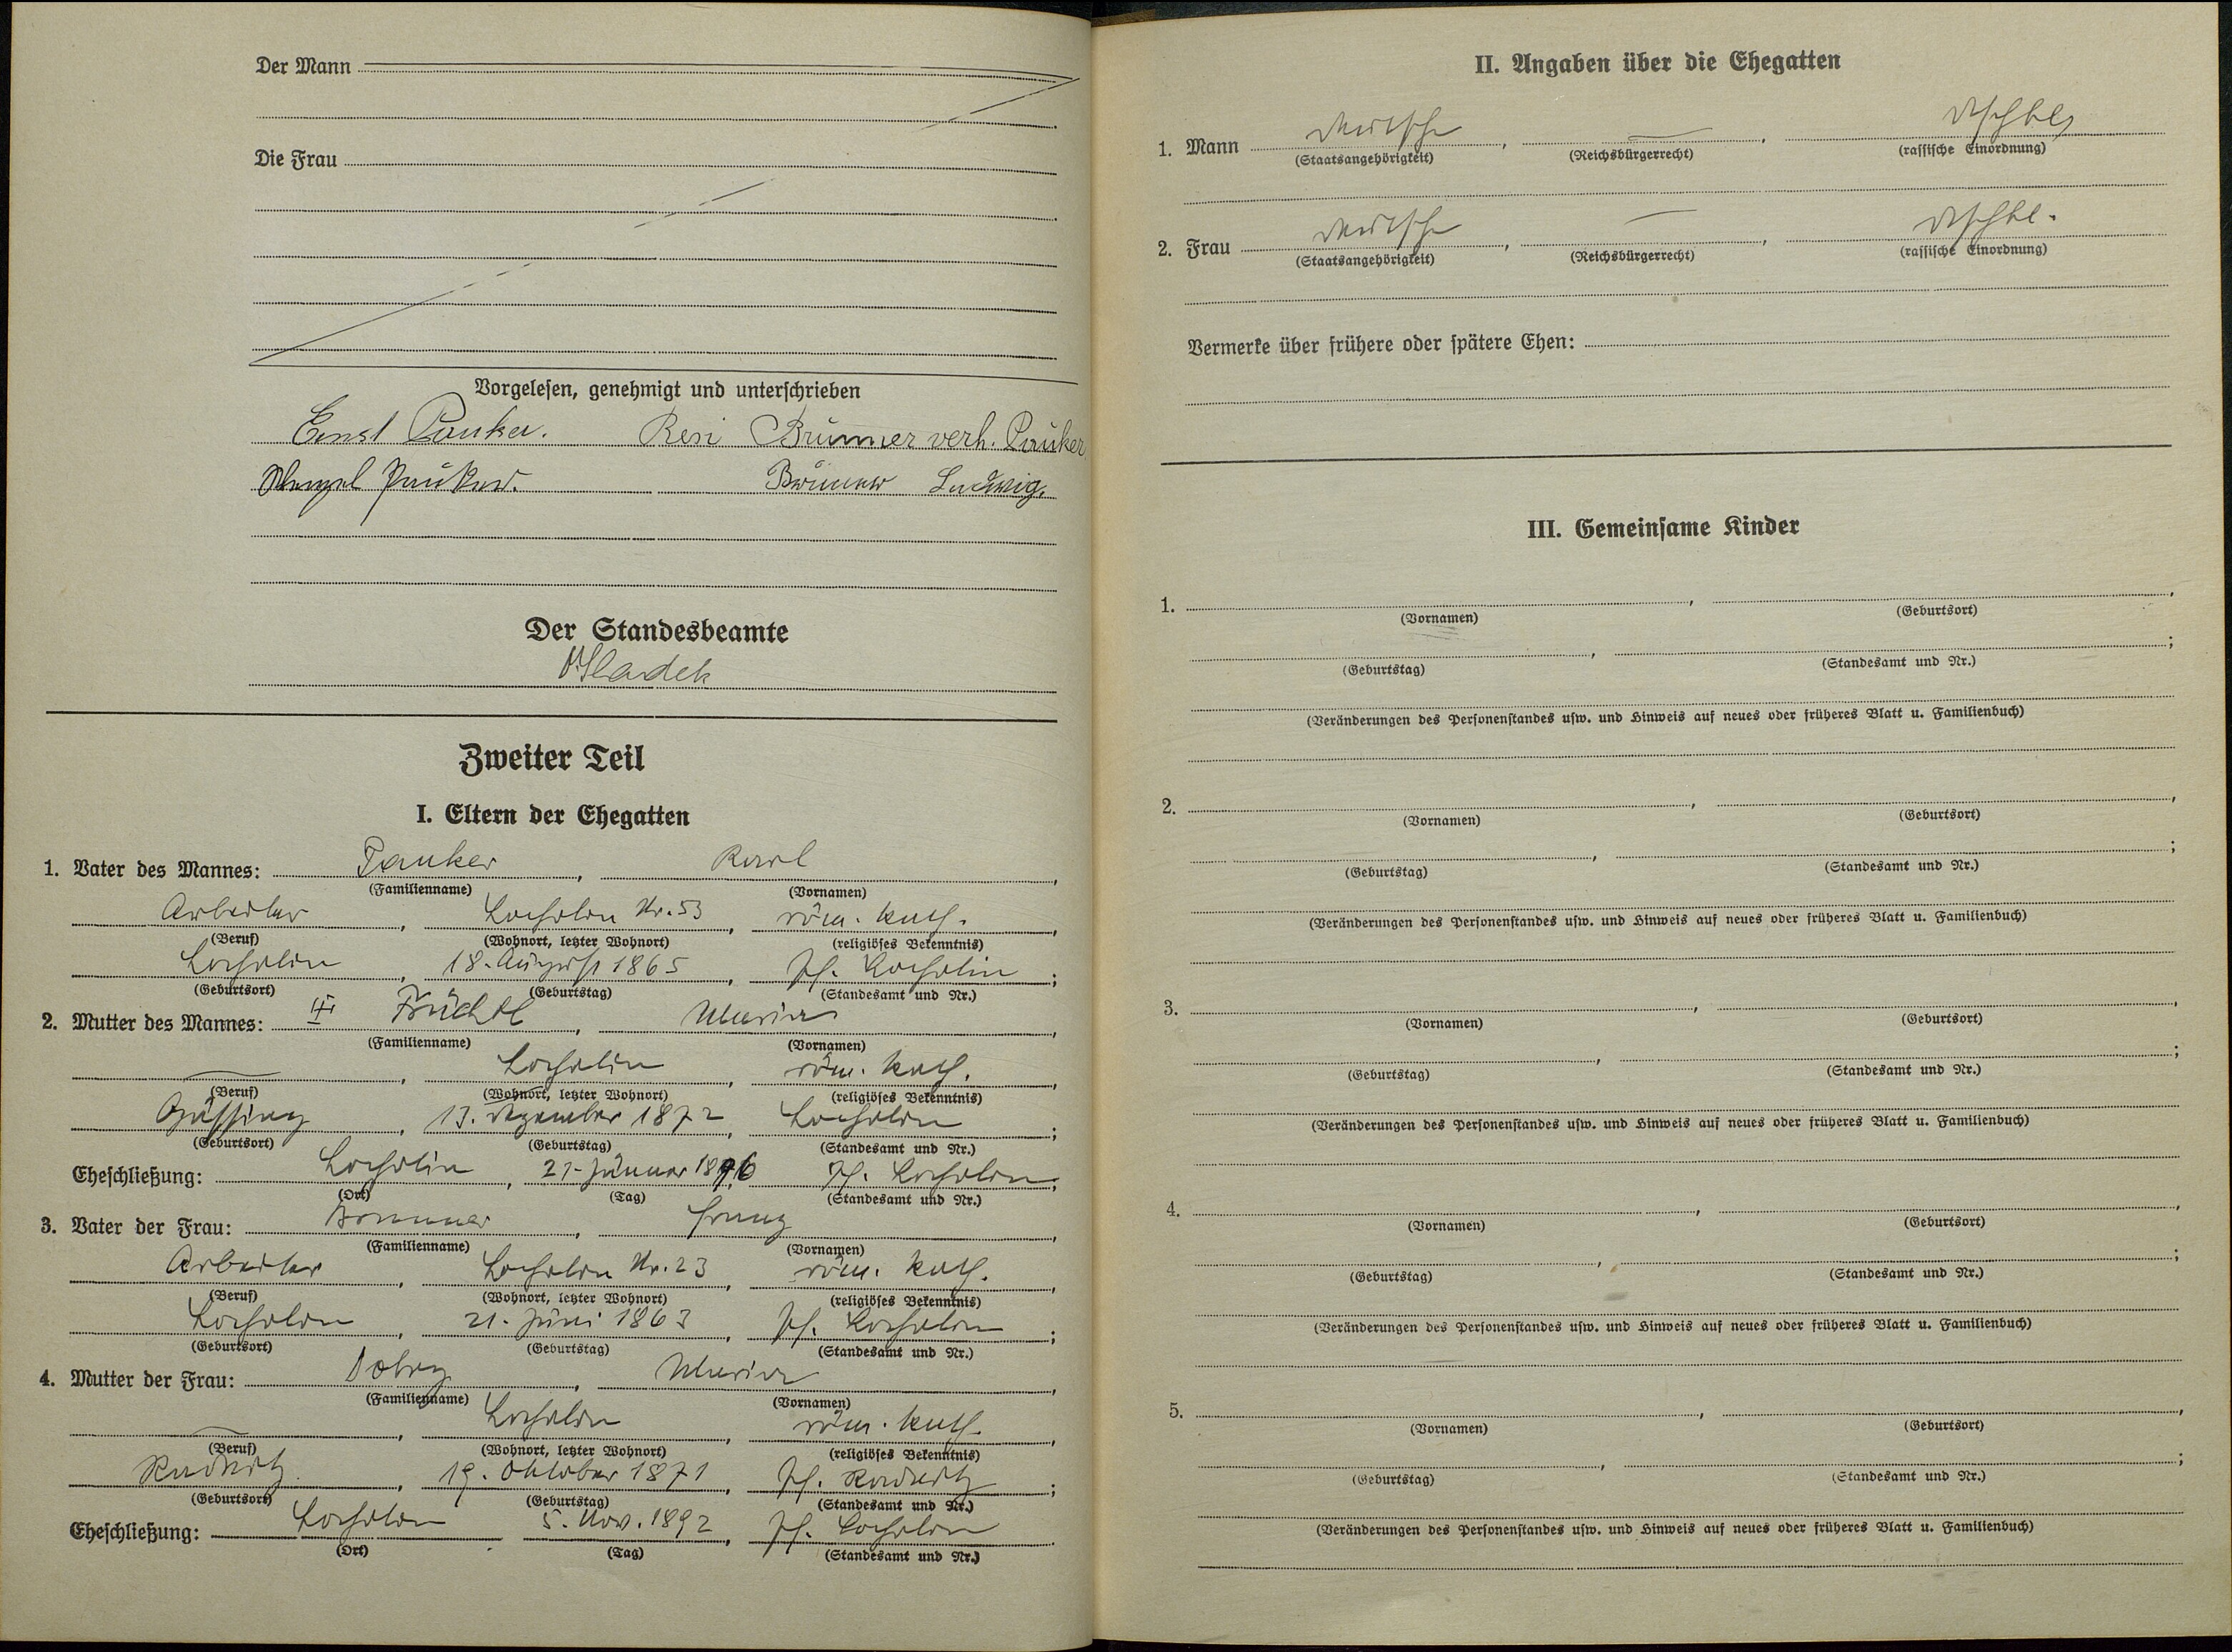 Der Mann
Die Frau
Vorgelesen, genehmigt und unterschrieben
Ernst Pauker. Resi Brunner verh. Pauker
Wenzel Pauker. Brunner Ludwig.
Der Standesbeamte
Sladek
Zweiter Teil
I. Eltern der Ehegatten
1. Vater des Mannes: Pauker, Karl
(Familienname) (Vornamen)
Arbeiter, Locholin Nr. 53, röm. kath.,
(Beruf) (Wohnort, letzter Wohnort) (religiöses Bekenntnis)
Locholin, 18. August 1865, Pf. Locholin;
(Geburtsort) (Geburtstag) (Standesamt und Nr.)
2. Mutter des Mannes: Trüchtl, Maria
(Familienname) (Vornamen)
—, Locholin, röm. kath.,
(Beruf) (Wohnort, letzter Wohnort) (religiöses Bekenntnis)
13. Dezember 1872, Locholin;
(Geburtsort) (Geburtstag) (Standesamt und Nr.)
Eheschließung: Locholin, 21. Jänner 1896, Pf. Locholin;
(Ort) (Tag) (Standesamt und Nr.)
3. Vater der Frau: Brunner, Franz,
(Familienname) (Vornamen)
Arbeiter, Locholin Nr. 23, röm. kath.,
(Beruf) (Wohnort, letzter Wohnort) (religiöses Bekenntnis)
Locholin, 21. Juni 1863, Pf. Locholin;
(Geburtsort) (Geburtstag) (Standesamt und Nr.)
4. Mutter der Frau: Dobry, Maria,
(Familienname) (Vornamen)
—, Locholin, röm. kath.,
(Beruf) (Wohnort, letzter Wohnort) (religiöses Bekenntnis)
Radkritz, 19. Oktober 1871, Pf. Radkritz;
(Geburtsort) (Geburtstag) (Standesamt und Nr.)
Eheschließung: Locholin 5. Nov. 1892, Pf. Locholin.
(Ort) (Tag) (Standesamt und Nr.)
II. Angaben über die Ehegatten
1. Mann deutsche, —, dtschbl.
(Staatsangehörigkeit) (Reichsbürgerrecht) (rassische Einordnung)
2. Frau deutsche, —, dtschbl.
(Staatsangehörigkeit) (Reichsbürgerrecht) (rassische Einordnung)
Vermerke über frühere oder spätere Ehen:
III. Gemeinsame Kinder
1.
(Vornamen) (Geburtsort)
(Geburtstag) (Standesamt und Nr.)
(Veränderungen des Personenstandes usw. und Hinweis auf neues oder früheres Blatt u. Familienbuch)
2.
(Vornamen) (Geburtsort)
(Geburtstag) (Standesamt und Nr.)
(Veränderungen des Personenstandes usw. und Hinweis auf neues oder früheres Blatt u. Familienbuch)
3.
(Vornamen) (Geburtsort)
(Geburtstag) (Standesamt und Nr.)
(Veränderungen des Personenstandes usw. und Hinweis auf neues oder früheres Blatt u. Familienbuch)
4.
(Vornamen) (Geburtsort)
(Geburtstag) (Standesamt und Nr.)
(Veränderungen des Personenstandes usw. und Hinweis auf neues oder früheres Blatt u. Familienbuch)
5.
(Vornamen) (Geburtsort)
(Geburtstag) (Standesamt und Nr.)
(Veränderungen des Personenstandes usw. und Hinweis auf neues oder früheres Blatt u. Familienbuch)